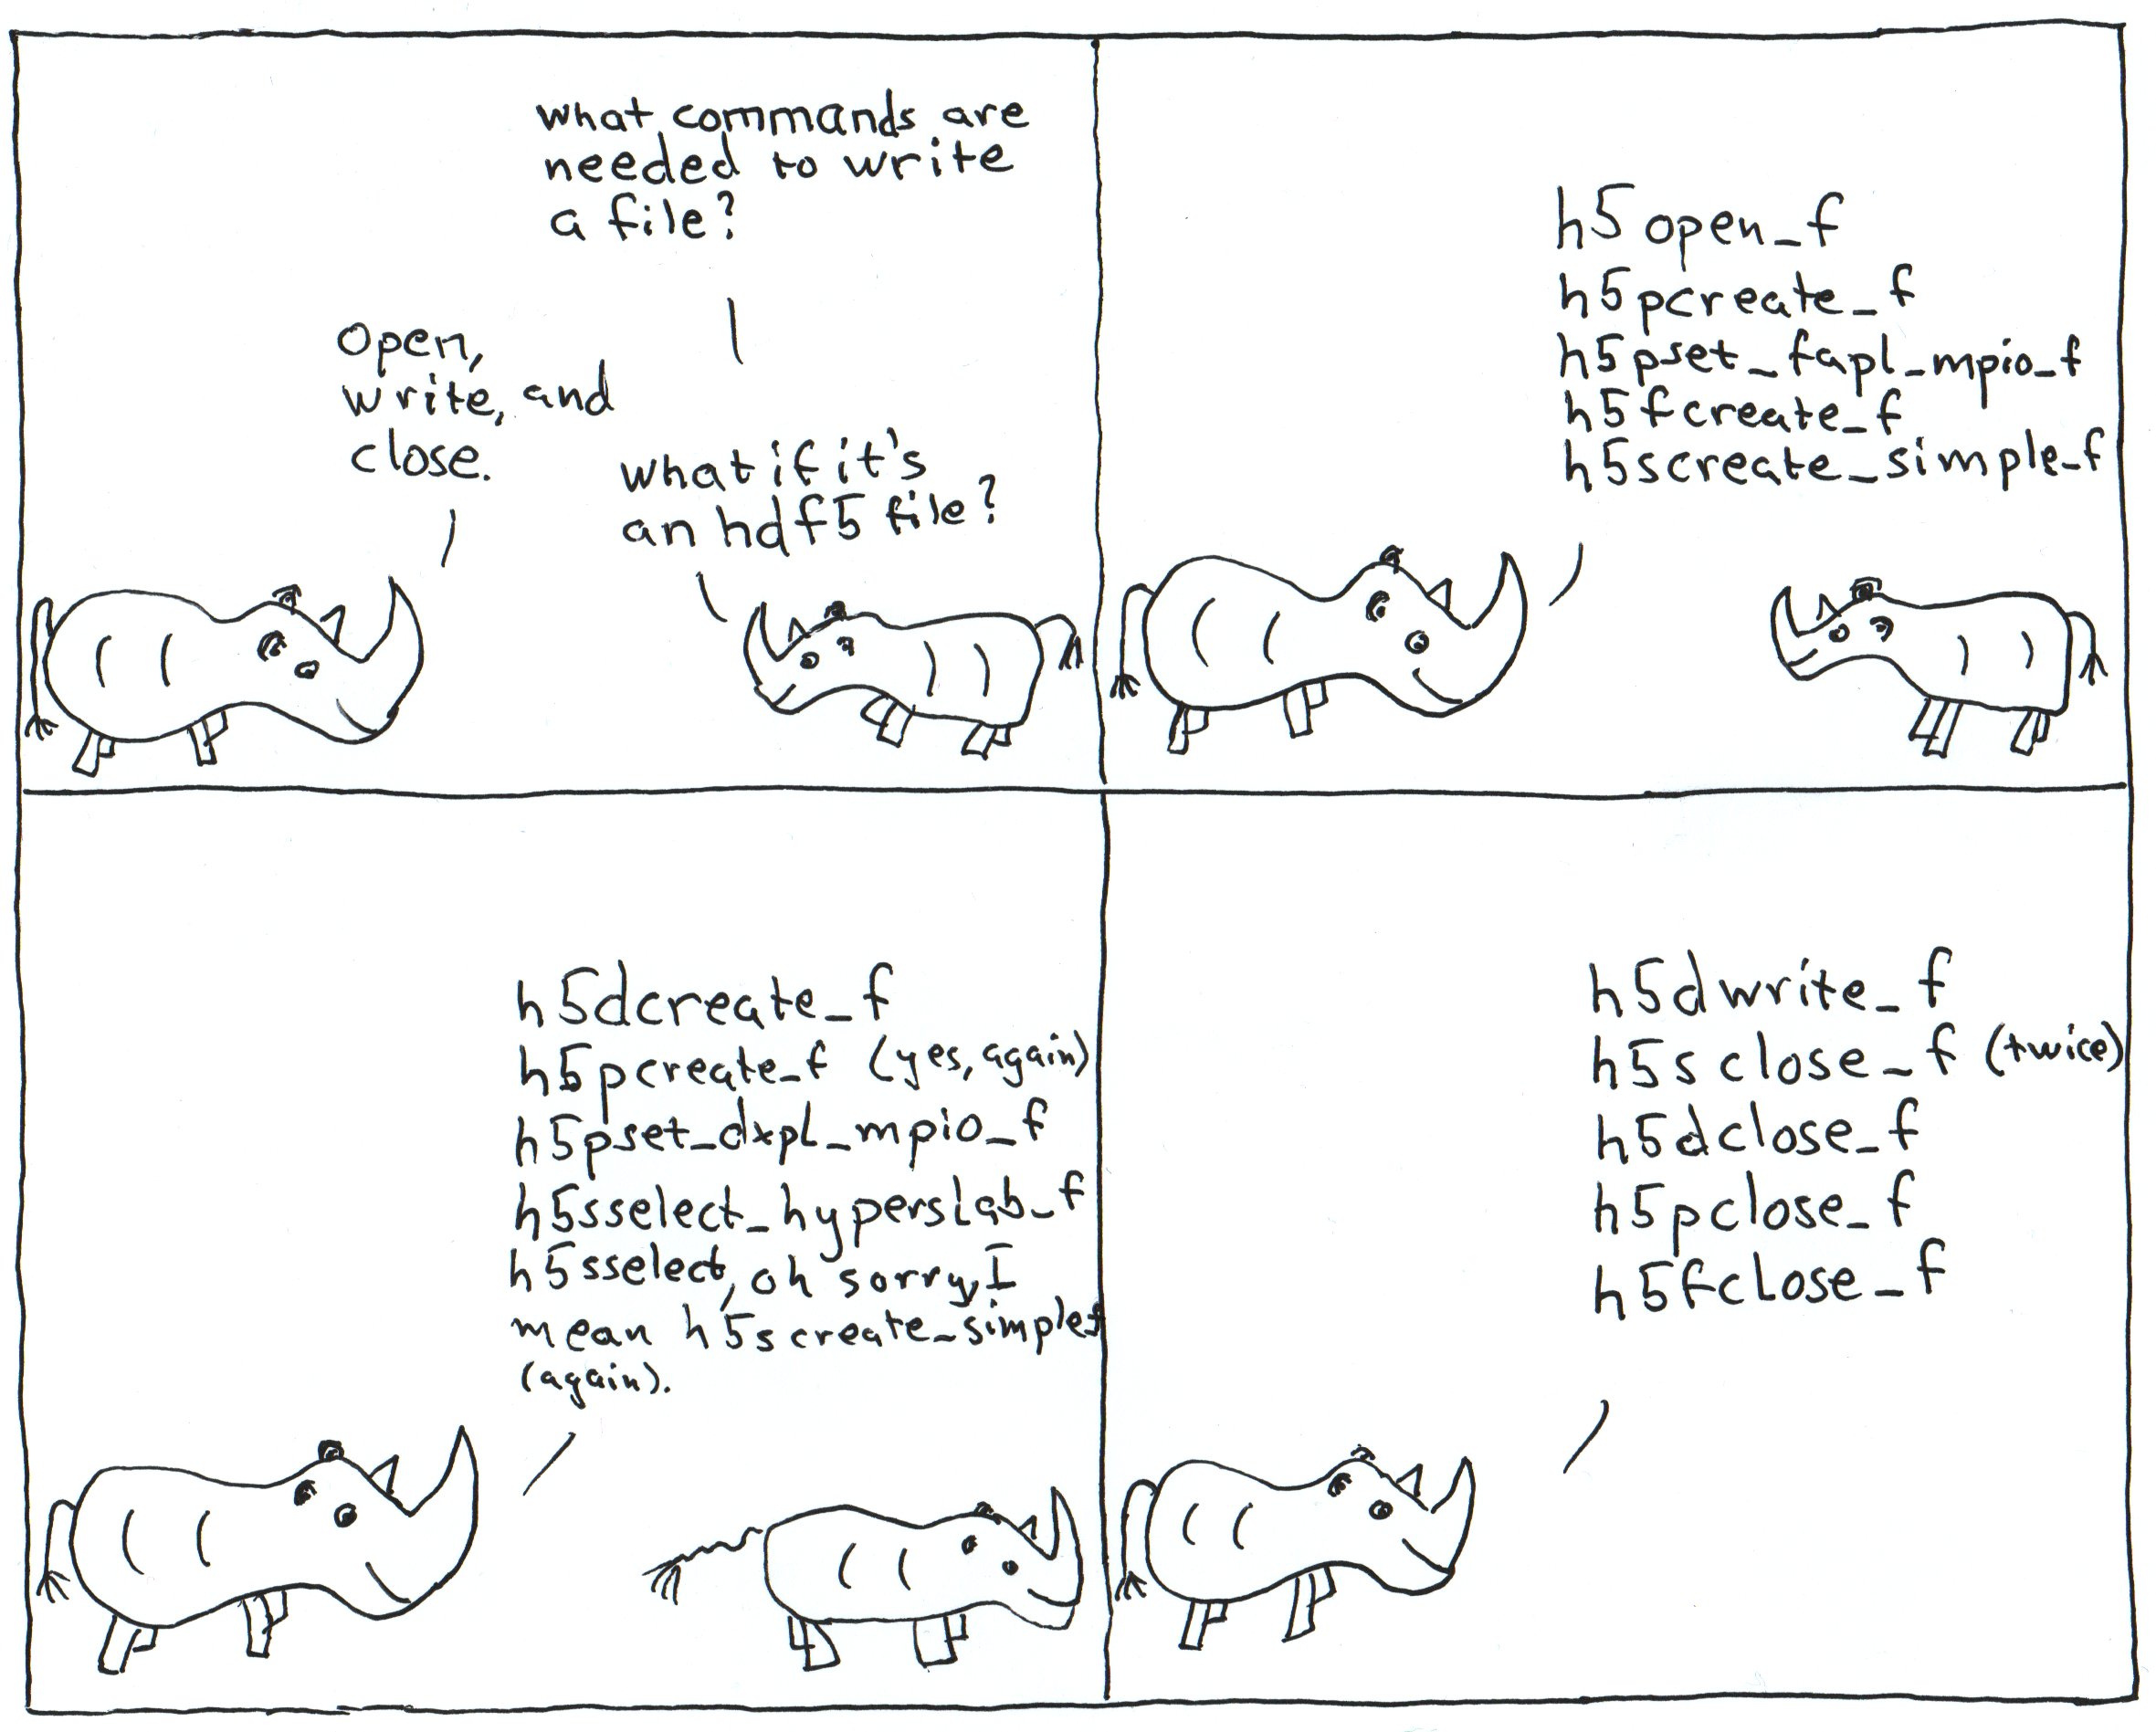 what commands are
needed to write
a file?
Open,
write, and
close.
What if it's
an hdf5 file?
h5open_f
h5pcreate_f
h5pset_fapl_mpio_f
h5fcreate_f
h5screate_simple_f
h5dcreate_f
h5pcreate_f (yes, again)
h5pset_dxpl_mpio_f
h5sselect_hyperslab_f
h5sselect, oh sorry, I
mean h5screate_simplef
(again).
h5dwrite_f
h5sclose_f (twice)
h5dclose_f
h5pclose_f
h5fclose_f